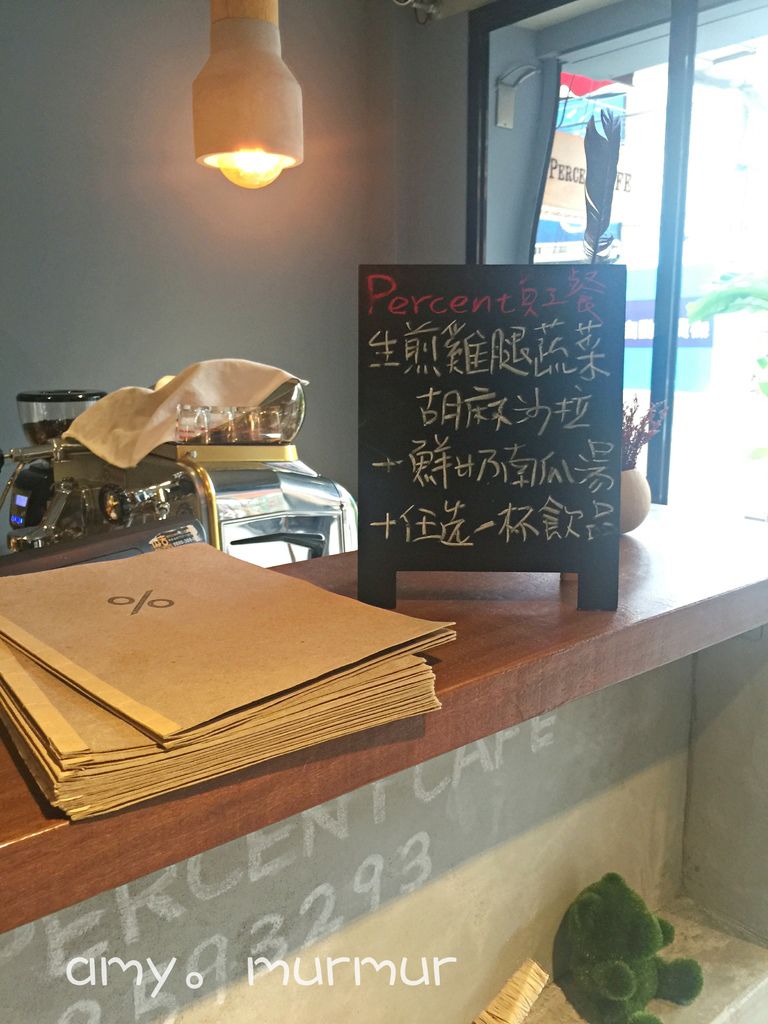 PERCE FE
Percent員工餐
生煎雞腿蔬菜
胡麻沙拉
+鮮奶南瓜湯
+任選一杯飲品
%
PERCENT CAFE
2593293
amy。murmur